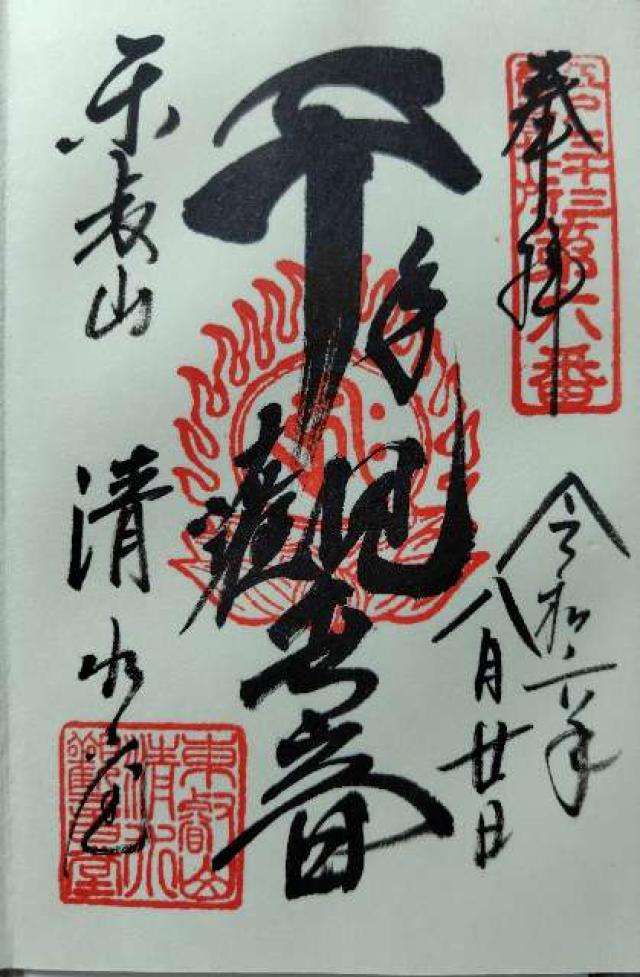 奉拝
第六番
令和六年
八月廿日
千手
觀世音
東叡山
清水堂
東叡山
清水
觀音堂